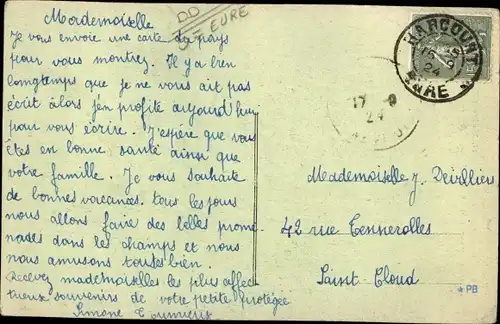 Mademoiselle
Je vous envoie une carte du pays
pour vous montrez. Il y a bien
longtemps que je ne vous ait pas
écrit alors j'en profite aujourd'hui
pour vous écrire. J'espère que vous
êtes en bonne santé ainsi que
votre famille. Je vous souhaite
de bonnes vacances. tous les jours
nous allons faire des belles prome
nades dans les champs et nous
nous amusons tous bien.
Recevez mademoiselles les plus affec
tueux souvenirs de votre petite protégée
Simone
DD
27 = EURE
HARCOURT
16
9
24
EURE
17 - 9
24
Mademoiselle J.
42 rue Tennerolles
Saint-Cloud
*PB